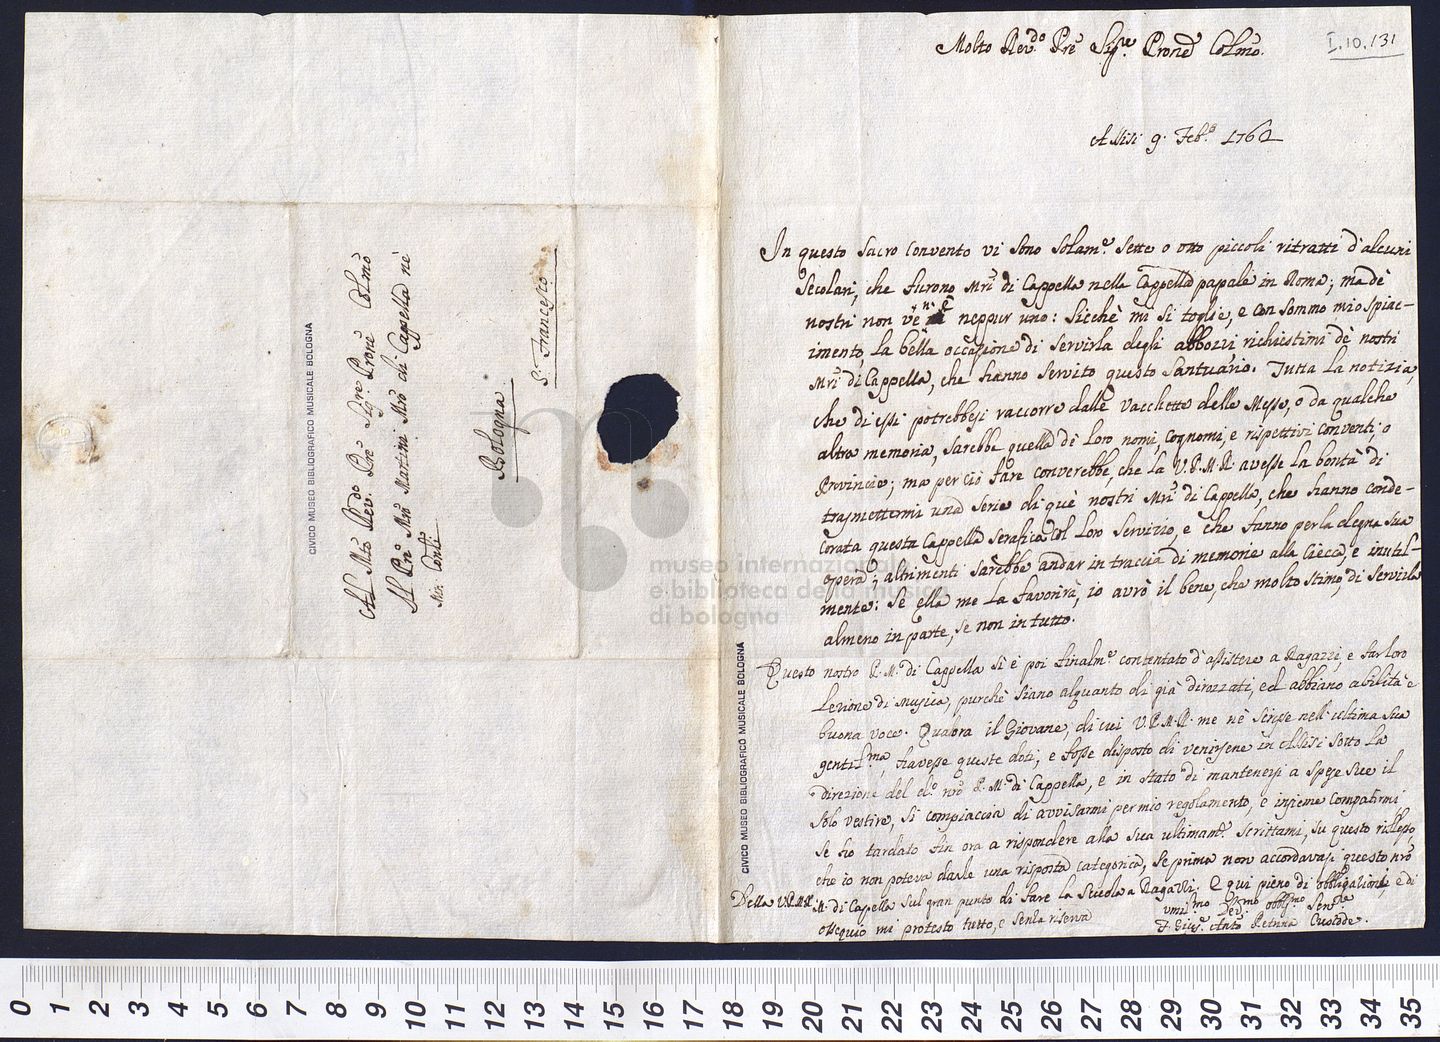 I.10.131
Molto Rev.do Pre Sig.re Prone Colmo.
Assisi 9. Feb.o 1762
In questo Sacro Convento vi sono solam.e sette o otto piccoli ritratti d'alcuni
Secolari, che furono Mri di Cappella nella Cappella papale in Roma; ma dè
nostri non ve n'è neppur uno: Sicchè mi si toglie, e con sommo mio spiac-
imento, la bella occasione di servirla degli abbozzi richiestimi dè nostri
Mri di Cappella, che hanno servito questo Santuario. Tutta la notizia,
che di essi potrebbesi raccorre dalle vacchette delle Messe, o da qualche
altra memoria, sarebbe quella dè loro nomi, cognomi, e rispettivi conventi, o
Provincie; ma per ciò fare converebbe, che la V.P.M.R. avesse la bontà di
trasmettermi una serie di què nostri Mri di Cappella, che hanno conde-
corata questa Cappella Serafica col loro servizio, e che fanno per la degna sua
opera; altrimenti sarebbe andar in traccia di memorie alla cieca, e inutil-
mente: Se ella me la favorirà, io avrò il bene, che molto stimo, di servirla
almeno in parte, se non in tutto.
Questo nostro P.M. di Cappella si è poi finalm.e contentato d'assistere a Ragazzi, e far loro
lezione di musica, purchè siano alquanto di già dirozzati, ed abbiano abilità e
buona voce. Qualora il Giovane, di cui V.P.M.R. me nè scrisse nell'ultima sua
gentil.ma, havesse queste doti, e fosse disposto di venirsene in Assisi sotto la
direzione del do nro P.M. di Cappella, e in stato di mantenersi a spese sue il
solo vestire, si compiaccia di avvisarmi per mio regolamento, e insieme compatirmi,
se ho tardato fin ora a rispondere alla sua ultimam.e scrittami, su questo riflesso,
che io non poteva darle una risposta categorica, se prima non accordavasi questo nro
M. di Capella sul gran punto di fare la scuola a Ragazzi. E qui pieno di obbligazioni, e di
ossequio mi protesto tutto, e senza riserva
Della V.P.M.R.
umil.mo Dev.mo obblig.mo Ser.re
F. Gius.e Ant.o Petrina Custode.
Al Mto Rev.do Pre Sig.re Prone Colmo
Il Pre Mro Martini Mro di Cappella nè
Min. Conli
Bologna
S. Francesco
CIVICO MUSEO BIBLIOGRAFICO MUSICALE BOLOGNA
CIVICO MUSEO BIBLIOGRAFICO MUSICALE BOLOGNA
museo internazionale
e biblioteca della musica
di bologna
0 1 2 3 4 5 6 7 8 9 10 11 12 13 14 15 16 17 18 19 20 21 22 23 24 25 26 27 28 29 30 31 32 33 34 35